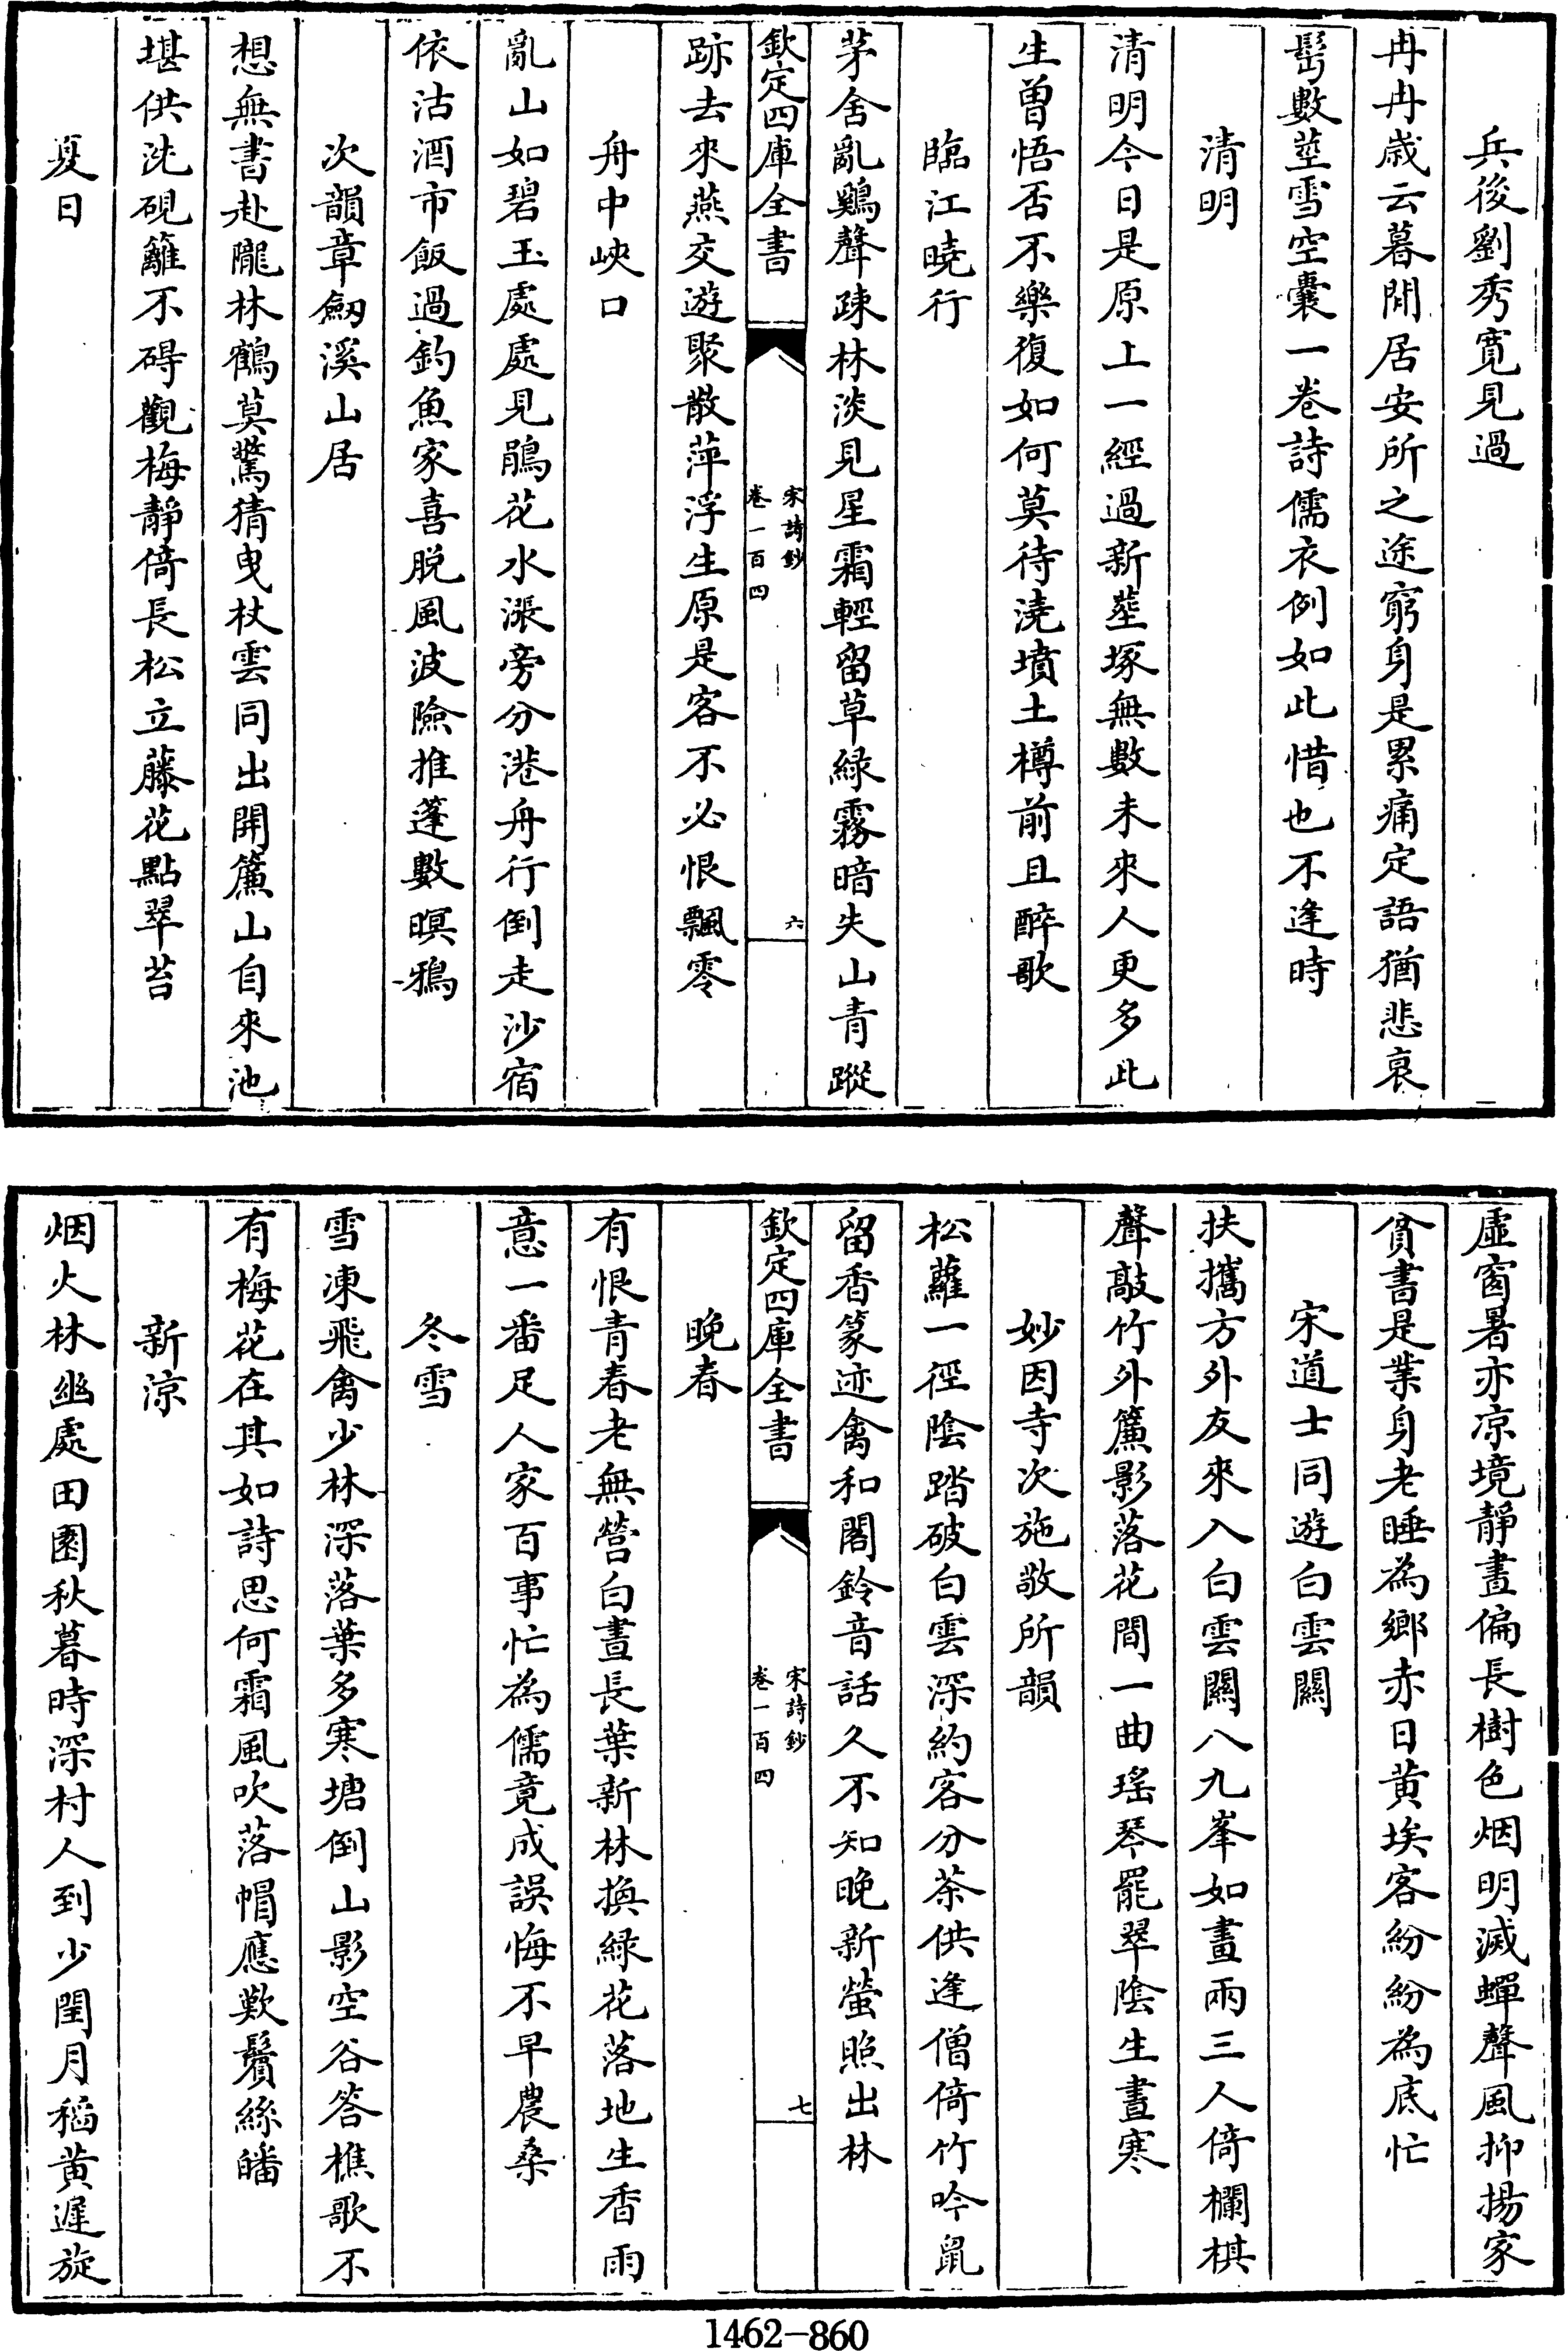 兵後劉秀寛見過
冉冉歳云暮閒居安所之途窮身是累痛定語猶悲哀
髩數莖雪空囊一卷詩儒衣例如此惜也不逢時
清明
清明今日是原上一經過新塋塚無數未來人更多此
生曽悟否不樂復如何莫待澆墳土樽前且醉歌
臨江曉行
茅舍亂鷄聲疎林淡見星霜輕留草緑霧暗失山青蹤
欽定四庫全書
宋詩鈔
卷一百四
六
跡去來燕交遊聚散萍浮生原是客不必恨飄零
舟中峽口
亂山如碧玉處處見鵑花水漲旁分港舟行倒走沙宿
依沽酒市飯過釣魚家喜脱風波險推蓬數暝鴉
次韻章劒溪山居
想無書赴隴林鶴莫驚猜曳杖雲同出開簾山自來池
堪供洗硯籬不碍觀梅靜倚長松立藤花點翠苔
夏日
虛窗暑亦凉境靜晝偏長樹色烟明滅蟬聲風抑揚家
貧書是業身老睡為鄉赤日黄埃客紛紛為底忙
宋道士同遊白雲關
扶攜方外友來入白雲闗八九峯如畫兩三人倚欄棋
聲敲竹外簾影落花間一曲瑶琴罷翠陰生晝寒
妙因寺次施敬所韻
松蘿一徑陰踏破白雲深約客分茶供逢僧倚竹吟鼠
留香篆迹禽和閣鈴音話久不知晚新螢照出林
欽定四庫全書
宋詩鈔
卷一百四
七
晚春
有恨青春老無營白晝長葉新林換緑花落地生香雨
意一番足人家百事忙為儒竟成誤悔不早農桑
冬雪
雪凍飛禽少林深落葉多寒塘倒山影空谷答樵歌不
有梅花在其如詩思何霜風吹落帽應歎鬢絲皤
新涼
烟火林幽處田園秋暮時深村人到少閏月稻黄遲旋
1462-860